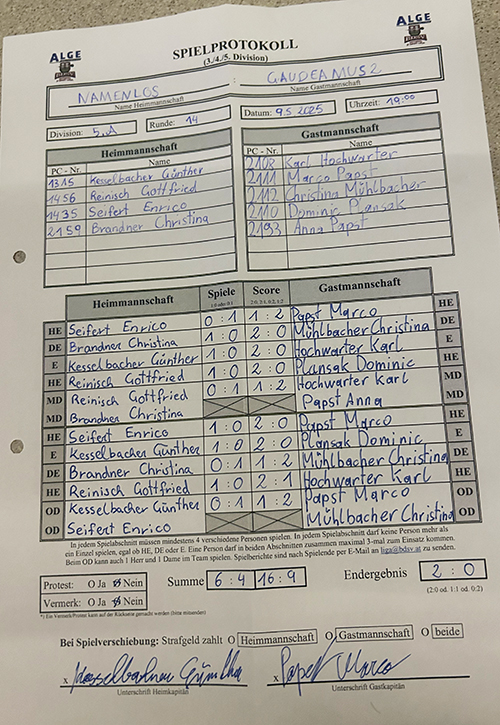 ALGE
ALGE
SPIELPROTOKOLL
(3./4./5. Division)
NAMENLOS : GAUDEAMUS 2
Name Heimmannschaft Name Gastmannschaft
Division: 5.A Runde: 14 Datum: 9.5 2025 Uhrzeit: 19:00
Heimmannschaft Gastmannschaft
PC - Nr. Name PC - Nr. Name
1315 Kesselbacher Günther 2108 Karl Hochwarter
1456 Reinisch Gottfried 2111 Marco Papst
1435 Seifert Enrico 2112 Christina Mühlbacher
2159 Brandner Christina 2110 Dominic Plansak
2193 Anna Papst
Heimmannschaft Spiele Score Gastmannschaft
1:0 oder 0:1 2:0, 2:1, 0:2, 1:2
HE Seifert Enrico 0:1 1:2 Papst Marco HE
DE Brandner Christina 1:0 2:0 Mühlbacher Christina DE
E Kesselbacher Günther 1:0 2:0 Hochwarter Karl E
HE Reinisch Gottfried 1:0 2:0 Plansak Dominic HE
MD Reinisch Gottfried 0:1 1:2 Hochwarter Karl MD
MD Brandner Christina Papst Anna MD
HE Seifert Enrico 1:0 2:0 Papst Marco HE
E Kesselbacher Günther 1:0 2:0 Plansak Dominic E
DE Brandner Christina 0:1 1:2 Mühlbacher Christina DE
HE Reinisch Gottfried 1:0 2:1 Hochwarter Karl HE
OD Kesselbacher Günther 0:1 1:2 Papst Marco OD
OD Seifert Enrico Mühlbacher Christina OD
In jedem Spielabschnitt müssen mindestens 4 verschiedene Personen spielen. In jedem Spielabschnitt darf keine Person mehr als
ein Einzel spielen, egal ob HE, DE oder E. Eine Person darf in beiden Abschnitten zusammen maximal 3-mal zum Einsatz kommen.
Beim OD kann auch 1 Herr und 1 Dame im Team spielen. Spielberichte sind nach Spielende per E-Mail an liga@bdsv.at zu senden.
Protest: O Ja O Nein Summe 6:4 16:9 Endergebnis 2:0
Vermerk: O Ja O Nein (2:0 od. 1:1 od. 0:2)
*) Ein Vermerk/Protest kann auf der Rückseite gemacht werden (bitte mitsenden)
Bei Spielverschiebung: Strafgeld zahlt O Heimmannschaft O Gastmannschaft O beide
x Kesselbacher Günther x Papst Marco
Unterschrift Heimkapitän Unterschrift Gastkapitän